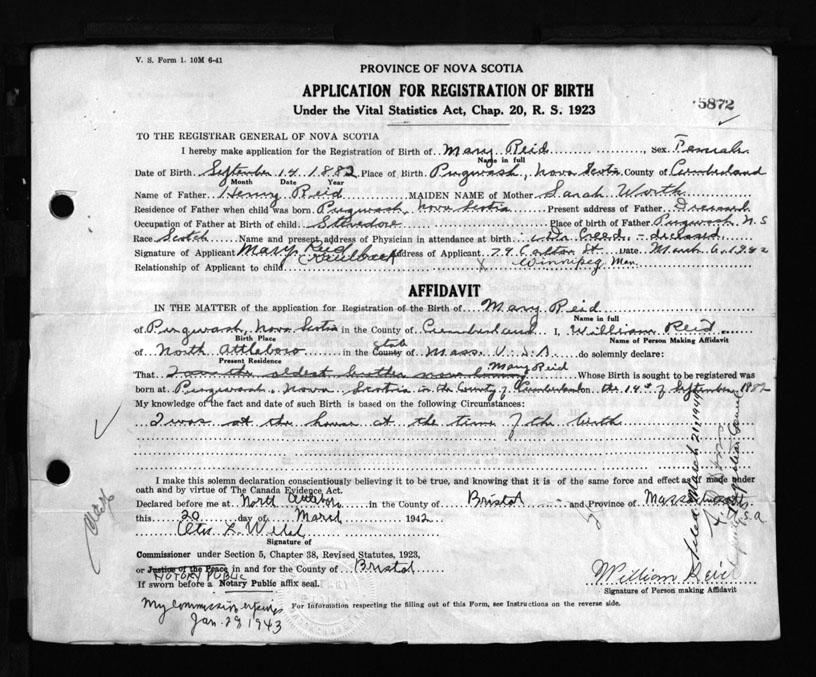 V. S. Form 1. 10M 6-41
PROVINCE OF NOVA SCOTIA
APPLICATION FOR REGISTRATION OF BIRTH
Under the Vital Statistics Act, Chap. 20, R. S. 1923
5872
TO THE REGISTRAR GENERAL OF NOVA SCOTIA
I hereby make application for the Registration of Birth of Mary Reid, Sex Female
Name in full
Date of Birth September 14 1882 Place of Birth Pugwash, Nova Scotia County of Cumberland
Month Date Year
Name of Father Henry Reid MAIDEN NAME of Mother Sarah Worth
Residence of Father when child was born Pugwash, Nova Scotia Present address of Father Deceased
Occupation of Father at Birth of child Stevedore Place of birth of Father Pugwash N. S
Race Scotch Name and present address of Physician in attendance at birth Dr Creed - deceased
Signature of Applicant Mary Reid Kaulback Address of Applicant 74 Carlton St. Date March 6, 1942
Relationship of Applicant to child Winnipeg Man.
AFFIDAVIT
IN THE MATTER of the application for Registration of the Birth of Mary Reid
Name in full
of Pugwash, Nova Scotia in the County of Cumberland I, William Reid
Birth Place Name of Person Making Affidavit
of North Attleboro in the County State of Mass. U. S. A. do solemnly declare:
Present Residence
That I was the oldest brother Mary Reid Whose Birth is sought to be registered was
born at Pugwash, Nova Scotia in the County of Cumberland on the 14th of September 1882
My knowledge of the fact and date of such Birth is based on the following Circumstances:
I was at the house at the time of the birth
I make this solemn declaration conscientiously believing it to be true, and knowing that it is of the same force and effect as if made under
oath and by virtue of The Canada Evidence Act.
Declared before me at North Attleboro in the County of Bristol and Province of Massachusetts
this 20 day of March 1942 U.S.A
Otis L.
Signature of
Commissioner under Section 5, Chapter 38, Revised Statutes, 1923,
or Justice of the Peace in and for the County of Bristol
NOTARY PUBLIC
If sworn before a Notary Public affix seal.
William Reid
Signature of Person making Affidavit
My Commission expires
Jan. 28, 1943
For Information respecting the filling out of this Form, see Instructions on the reverse side.
Filed March 21, 1942